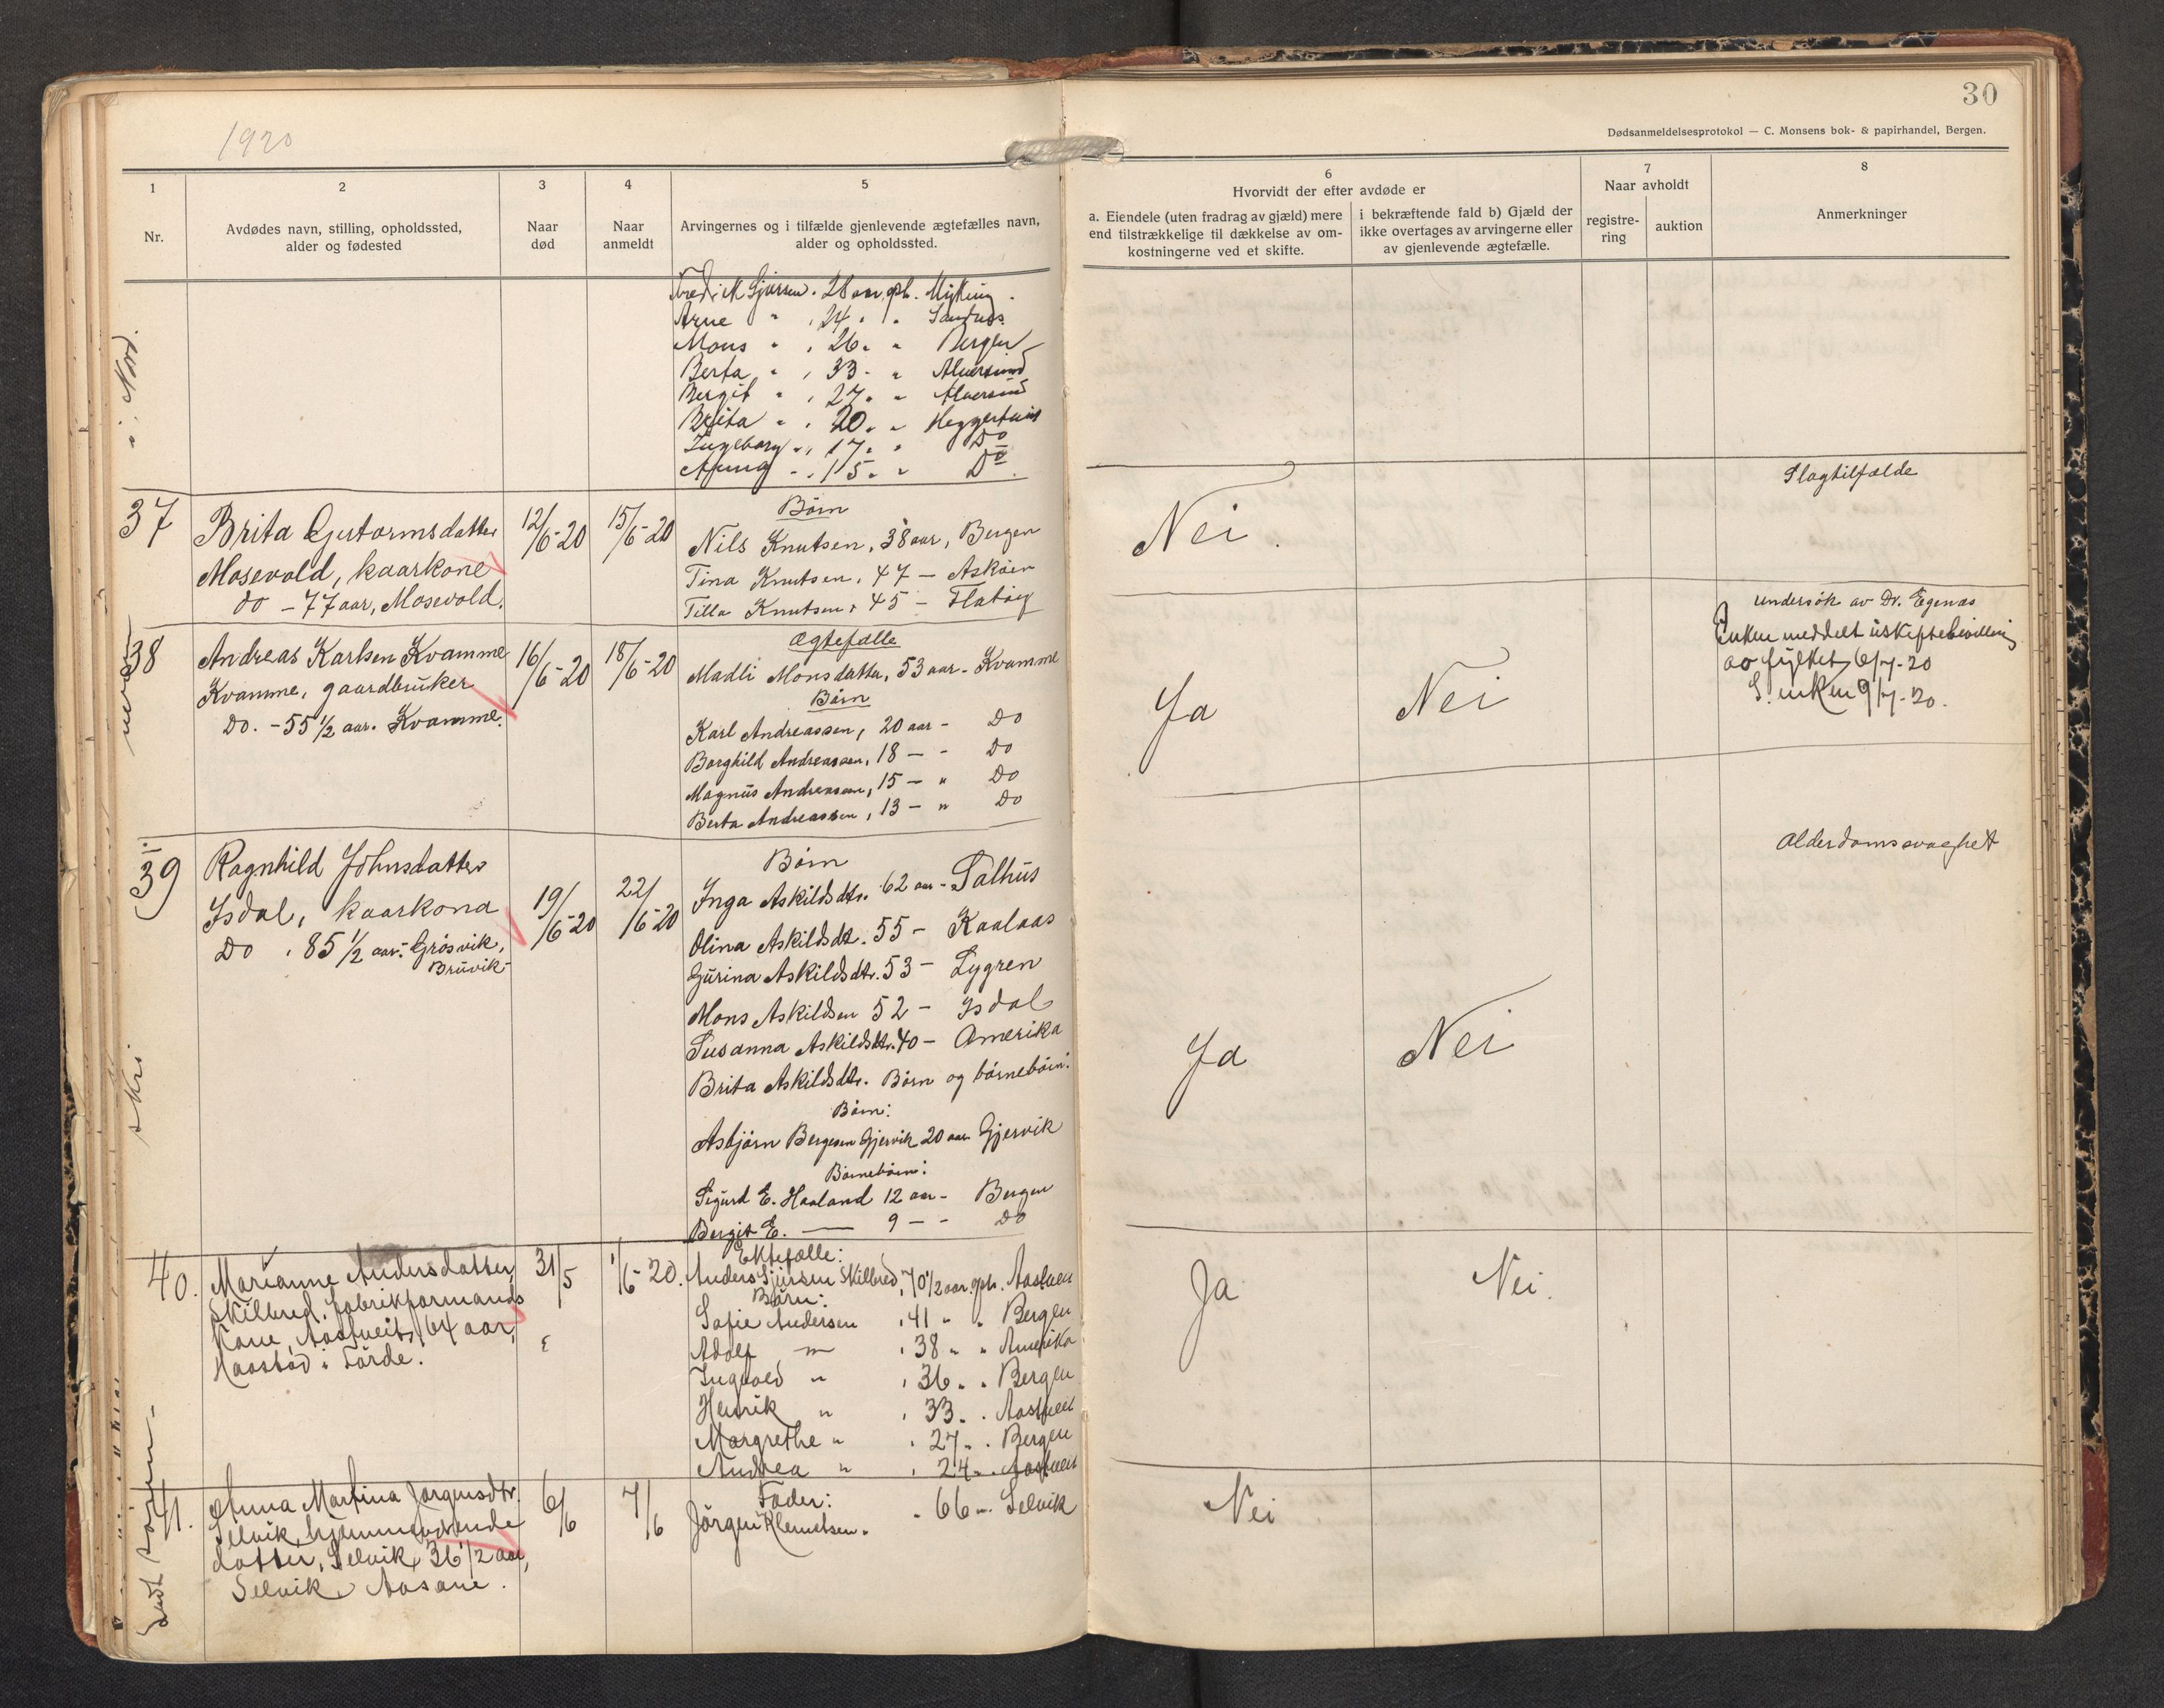 1920
30
Dødsanmeldelsesprotokol — C. Monsens bok- & papirhandel, Bergen.
1
Nr.
2
Avdødes navn, stilling, opholdssted,
alder og fødested
3
Naar
død
4
Naar
anmeldt
5
Arvingernes og i tilfælde gjenlevende ægtefælles navn,
alder og opholdssted.
6
Hvorvidt der efter avdøde er
a. Eiendele (uten fradrag av gjæld) mere
end tilstrækkelige til dækkelse av om-
kostningerne ved et skifte.
i bekræftende fald b) Gjæld der
ikke overtages av arvingerne eller
av gjenlevende ægtefælle.
7
Naar avholdt
registre-
ring
auktion
8
Anmerkninger
Fredrik Sjursen. 28 aar, oph. Myking.
Arne " , 24 " "
Mons " , 26 " " Bergen
Berta " , 33 " " Alversund
Bergit " , 27 " " Alversund
Brita " , 20 " "
Ingeborg " , 17 " " Do
" , 15 " " Do
37
Brita Guttormsdatter
Mosevold, kaarkone
do - 77 aar, Mosevold.
12/6-20
15/6-20
Børn
Nils Knutsen, 38 aar, Bergen
Tina Knutsen, 47 — Askøen
Tilla Knutsen, 45 — Flatøy
Nei.
Slagtilfælde
38
Andreas Karlsen Kvamme
Kvamme, gaardbruker
Do. - 55 1/2 aar. Kvamme.
16/6-20
18/6-20
Ægtefælle
Madli Monsdatter, 53 aar - Kvamme
Børn
Karl Andreassen, 20 aar - Do
Borghild Andreassen, 18 — - Do
Magnus Andreassen, 15 — " Do
Berta Andreassen, 13 — " Do
Ja
Nei
Undersøk av Dr. Egenæs
Enken meddelt uskiftebevilling
av fylket 6/7-20
S. enken 9/7-20.
39
Ragnhild Johnsdatter
Isdal, kaarkona
Do , 85 1/2 aar - Grøsvik,
Bruvik-
19/6-20
22/6-20
Børn
Inga Askildsdtr. 62 aar - Salhus
Olina Askildsdt. 55 - Kaalaas
Gurina Askildsdtr. 53 - Lygren
Mons Askildsen 52 - Isdal
Susanna Askildsdtr. 40 - Amerika
Brita Askildsdtr. Børn og børnebørn:
Børn:
Asbjørn Bergesen Gjervik 20 aar Gjervik
Børnebørn:
Sigurd E. Haaland 12 aar - Bergen
Bergit E. — 9 — - Do
Ja
Nei
Alderdomssvaghet
40.
Marianne Andersdatter
Skilbred, fabrikformands
kone, Aastveit, 64 aar,
Haastad i Førde.
31/5
1/6-20.
Ektefælle:
Anders Sjursen Skilbred, 70 1/2 aar, oph. Aastveit
Børn:
Sofie Andersen , 41 " " Bergen
Adolf — , 38 " " Amerika
Ingvald " , 36 " " Bergen
Henrik " , 33 " " Aastveit
Margrethe " , 27 " " Bergen
Andrea " , 24 " " Aastveit
Ja
Nei.
41.
Anna Martina Jørgensdtr.
Selvik, hjemmeværende
datter, Selvik, 36 1/2 aar,
Selvik, Aasane.
6/6
7/6
Fader:
Jørgen Klemetsen. " 66 — Selvik
Nei